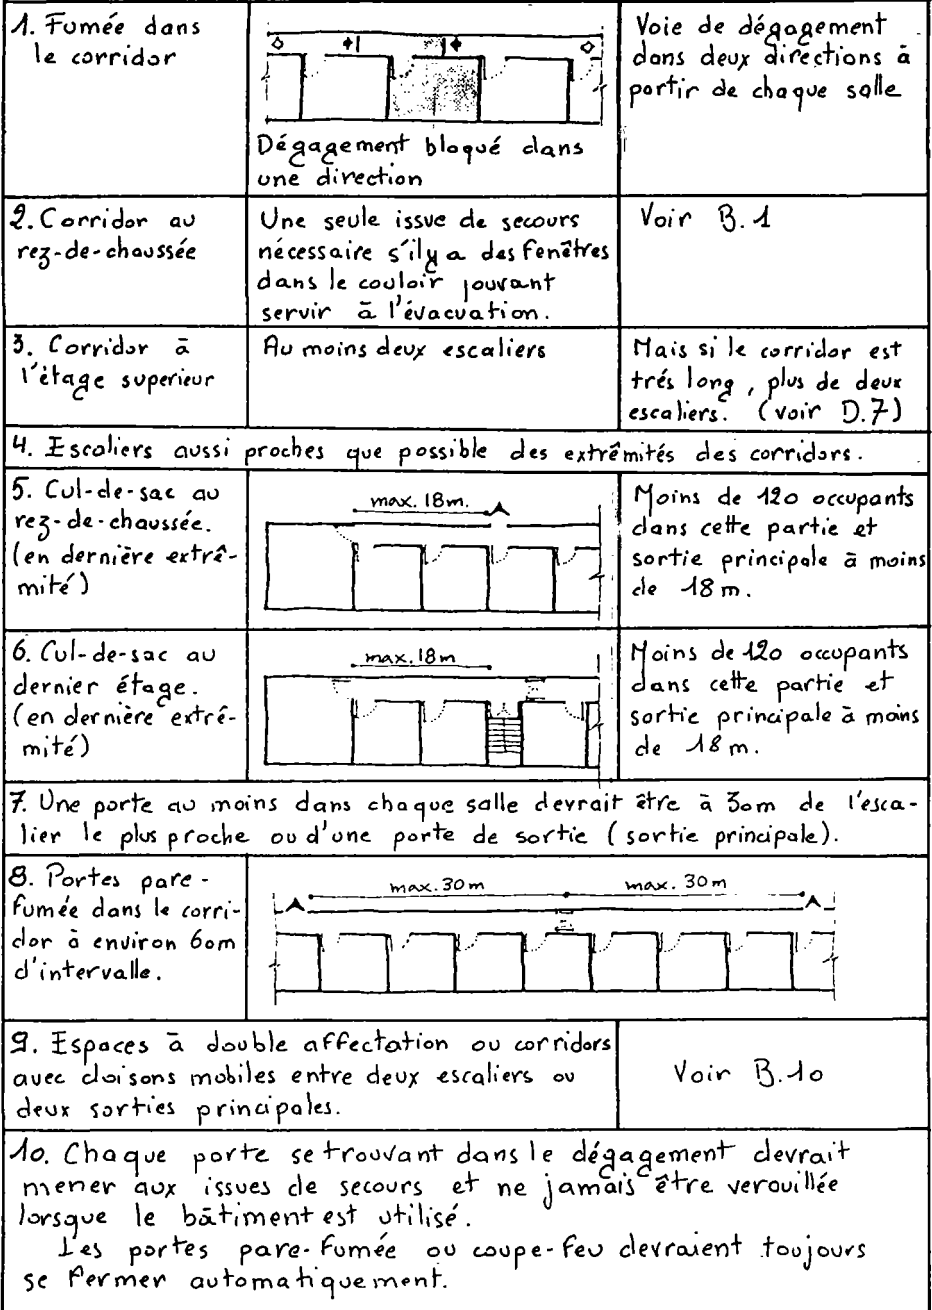 1. Fumée dans
le corridor
Dégagement bloqué dans
une direction
Voie de dégagement
dans deux directions à
partir de chaque salle
2. Corridor au
rez-de-chaussée
Une seule issue de secours
nécessaire s'il y a des fenêtres
dans le couloir pouvant
servir à l'évacuation.
Voir B.1
3. Corridor à
l'étage superieur
Au moins deux escaliers
Mais si le corridor est
trés long, plus de deux
escaliers. (voir D.7)
4. Escaliers aussi proches que possible des extrêmités des corridors.
5. Cul-de-sac au
rez-de-chaussée.
(en dernière extrê-
mité)
max. 18m.
Moins de 120 occupants
dans cette partie et
sortie principale à moins
de 18 m.
6. Cul-de-sac au
dernier étage.
(en dernière extrê-
mité)
max. 18m
Moins de 120 occupants
dans cette partie et
sortie principale à moins
de 18 m.
7. Une porte au moins dans chaque salle devrait être à 30m de l'esca-
lier le plus proche ou d'une porte de sortie (sortie principale).
8. Portes pare-
fumée dans le corri-
dor à environ 60m
d'intervalle.
max. 30m
max. 30m
9. Espaces à double affectation ou corridors
avec cloisons mobiles entre deux escaliers ou
deux sorties principales.
Voir B.10
10. Chaque porte se trouvant dans le dégagement devrait
mener aux issues de secours et ne jamais être verouillée
lorsque le bâtiment est utilisé.
Les portes pare-fumée ou coupe-feu devraient toujours
se fermer automatiquement.